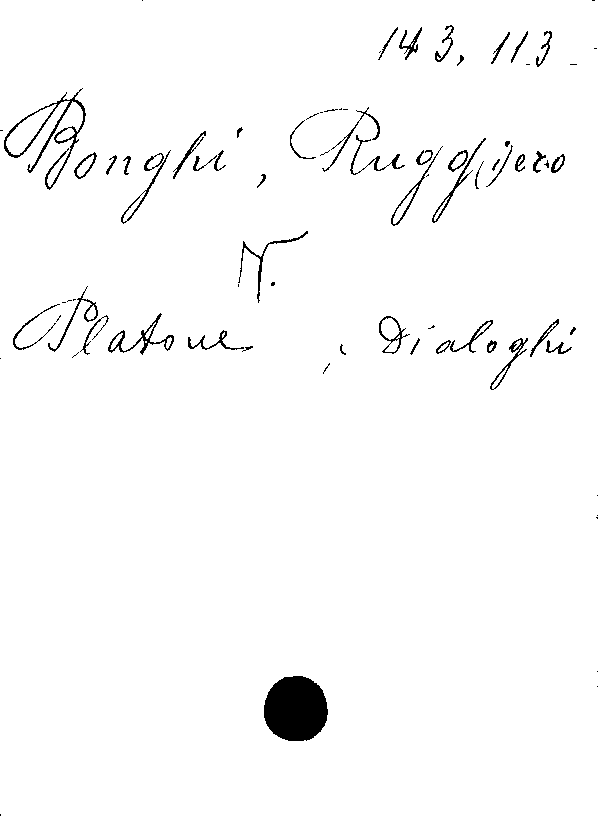 143.113
Bonghi, Ruggiero
V.
Platone, Dialoghi